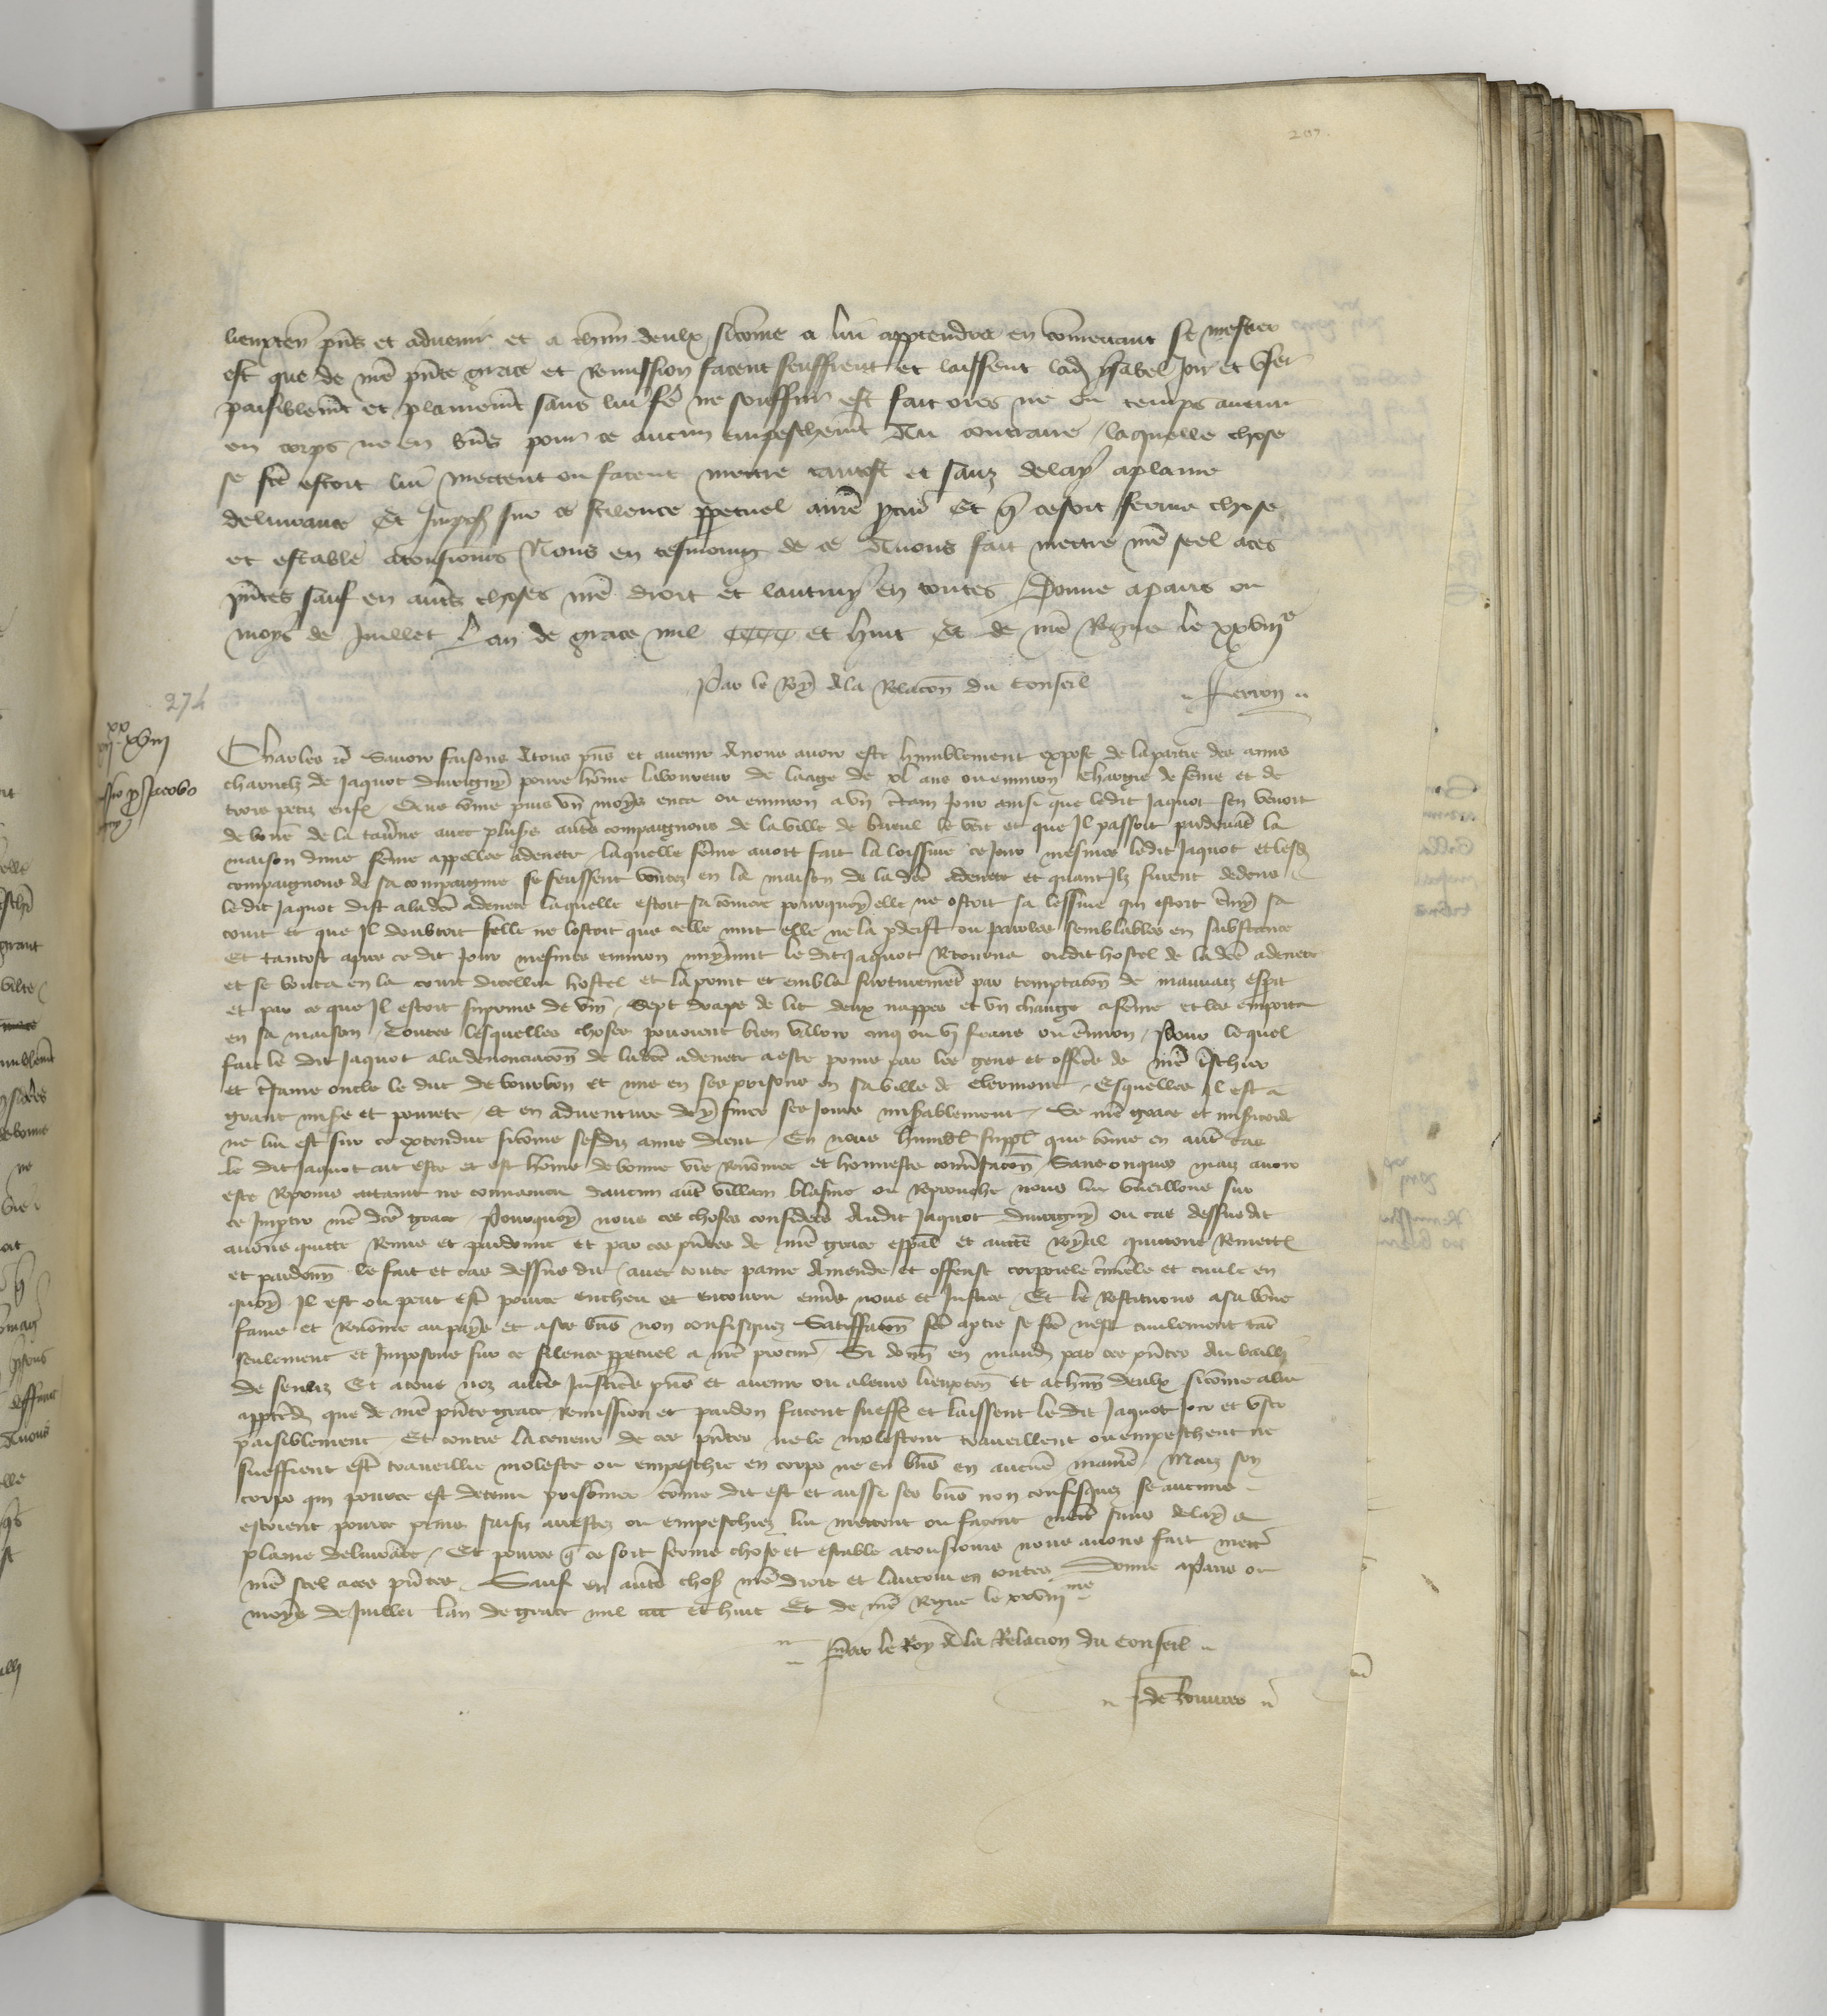 207.
lieuxten pns et advenir et a chun deulx sicome a lui appartendra en comettant se mestier
est que de nre pnte grace et remission facent seuffrent et laissent lad ysabel joir et user
paisiblemt et plainemt sans lui fe ne souffrir est fait ores ne ou temps avenir
en corps ne en bns pour ce aucun empeschemt Au contraire laquelle chose
se fce estoit lui mettent ou facent mettre tantost et sanz delay a plaine
delivrance Et Imposs sur ce scilence ppetuel a nre pcur Et q ce soit ferme chose
et estable a tousiours Nous en tesmoing de ce Avons fait mettre nre seel a ces
pntes sauf en autres choses nre droit et lautruy en toutes Donne a paris ou
moys de Juillet Lan de grace mil CCCC et huit Et de nre Regne le xxviiie
Par le Roy A la Relacon du Conseil
Ferron
274
Charles etc Savoir faisons A tous pns et avenir A nous avoir este humblement expose de la partie des amis
charnelz de Jaquot povre home laboureur de laage de xl ans ou environ chargie de feme et de
trois petiz enfs Que come puis un moys enca ou environ a un certain jour ainsi que ledit Jaquot sen venoit
de boire de la taverne avec plusrs autres compaignons de la ville de le vert et que Il passoit pardevant la
maison dune feme appellee Adenete laquelle feme avoit fait la loissive ce jour mesmes ledit Jaquot et lesd
compaignons de sa compaignie se feussent boutez en la maison de la dce Adenete et quant Ilz furent dedens
le dit Jaquot dist a la dce Adenete laquelle estoit sa comere pourquoy elle ne ostoit sa lessive qui estoit enmy sa
court et que Il doubtoit selle ne lostoit que celle nuit elle ne la perdist ou paroles semblables en substance
Et tantost apres ce dit jour mesmes environ mynuit le dit Jaquot Retourna oudit hostel de la dce Adenete
et se bouta en la court dicellui hostel et la print et embla furtivement par temptacon de mauvaiz esprit
et par ce que Il estoit surprins de vin Sept draps de lit deux nappes et un chainge a feme et les emporta
en sa maison Toutes lesquelles choses povoient bien valoir cinq ou vj frans ou environ Pour lequel
fait le dit Jaquot a la denonciacon de ladce Adenete a este prins par les gens et officrs de nre treschier
et Jame oncle le duc de bourbon et mis en ses prisons en sa ville de Clermont Esquelles Il est a
grant misere et povrete Et en adventure dy finer ses jours misablement Se nre grace et misericorde
ne lui est sur ce extendue sicome sesdiz amis dient En nous humbl suppl que come en autre cas
le dit Jaquot ait este et est home de bonne vie Renomee et honneste conversacon Sans onques mais avoir
este Reprins actaint ne convaincu daucun aut villain blasme ou Reprouche nous lui vueillons sur
ce Impartir nre dce grace Pourquoy nous ces choses considerees Audit Jaquot ou cas dessusdit
avons quitte Remis et pardonne et par ces pntes de nre grace espal et auctte Royal quictons Remett
et pardonn le fait et cas dessus dit avec toute paine Amende et offense corporele crimele et civile en
quoy Il est ou peut est pour ce encheu et encouru envers nous et Justice Et le Restituons a sa bone
fame et Renomee au pays et a ses bns non confisquez Satiffacon fce a ptie se fce nest civilement tant
seulement et Imposons sur ce silence ppetuel a nre procur Si donn en mand par ces pntes Au bailli
de senliz Et a tous noz autres Justicrs pns et avenir ou a leurs lieuxten et a chun deulx sicome a lui
apptend que de nre pnte grace Remission et pardon facent sueff et laissent le dit Jaquot joir et user
paisiblement Et contre la teneur de ces pntes ne le molestent traveillent ou empeschent ne
sueffrent est traveillie moleste ou empeschie en corps ne en bns en aucune maniere Maiz son
corps qui pour ce est detenu prisonnier come dit est et aussi ses bns non confisquez se aucuns
estoient pour ce prins saisiz arrestez ou empeschiez lui mettent ou facent mettre sans delay a
plaine delivrance Et pour ce q ce soit ferme chose et estable a tousiours nous avons fait mettr
nre seel a ces pntes Sauf en autres chos nre droit et lautrui en toutes Donne a Paris ou
moys de Juillet lan de grace mil CCCC et huit Et de nre Regne le xxviiime
Par le Roy A la Relacion du Conseil